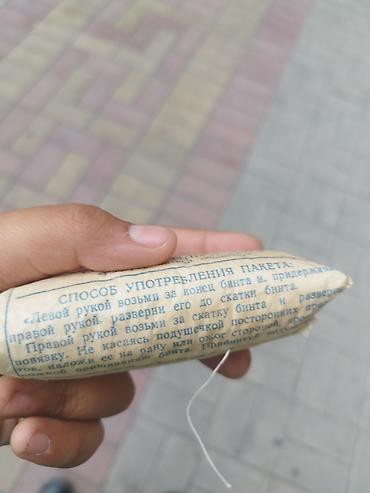 СПОСОБ УПОТРЕБЛЕНИЯ ПАКЕТА:
«Левой рукой возьми за конец бинта и, придержи
правой рукой, разверни его до скатки бинта.
Правой рукой возьми за скатку бинта и разверни
повязку. Не касаясь подушечкой посторонних пред
тов, наложи ее на рану или ожог стороной,
бинта. Прибинтуй